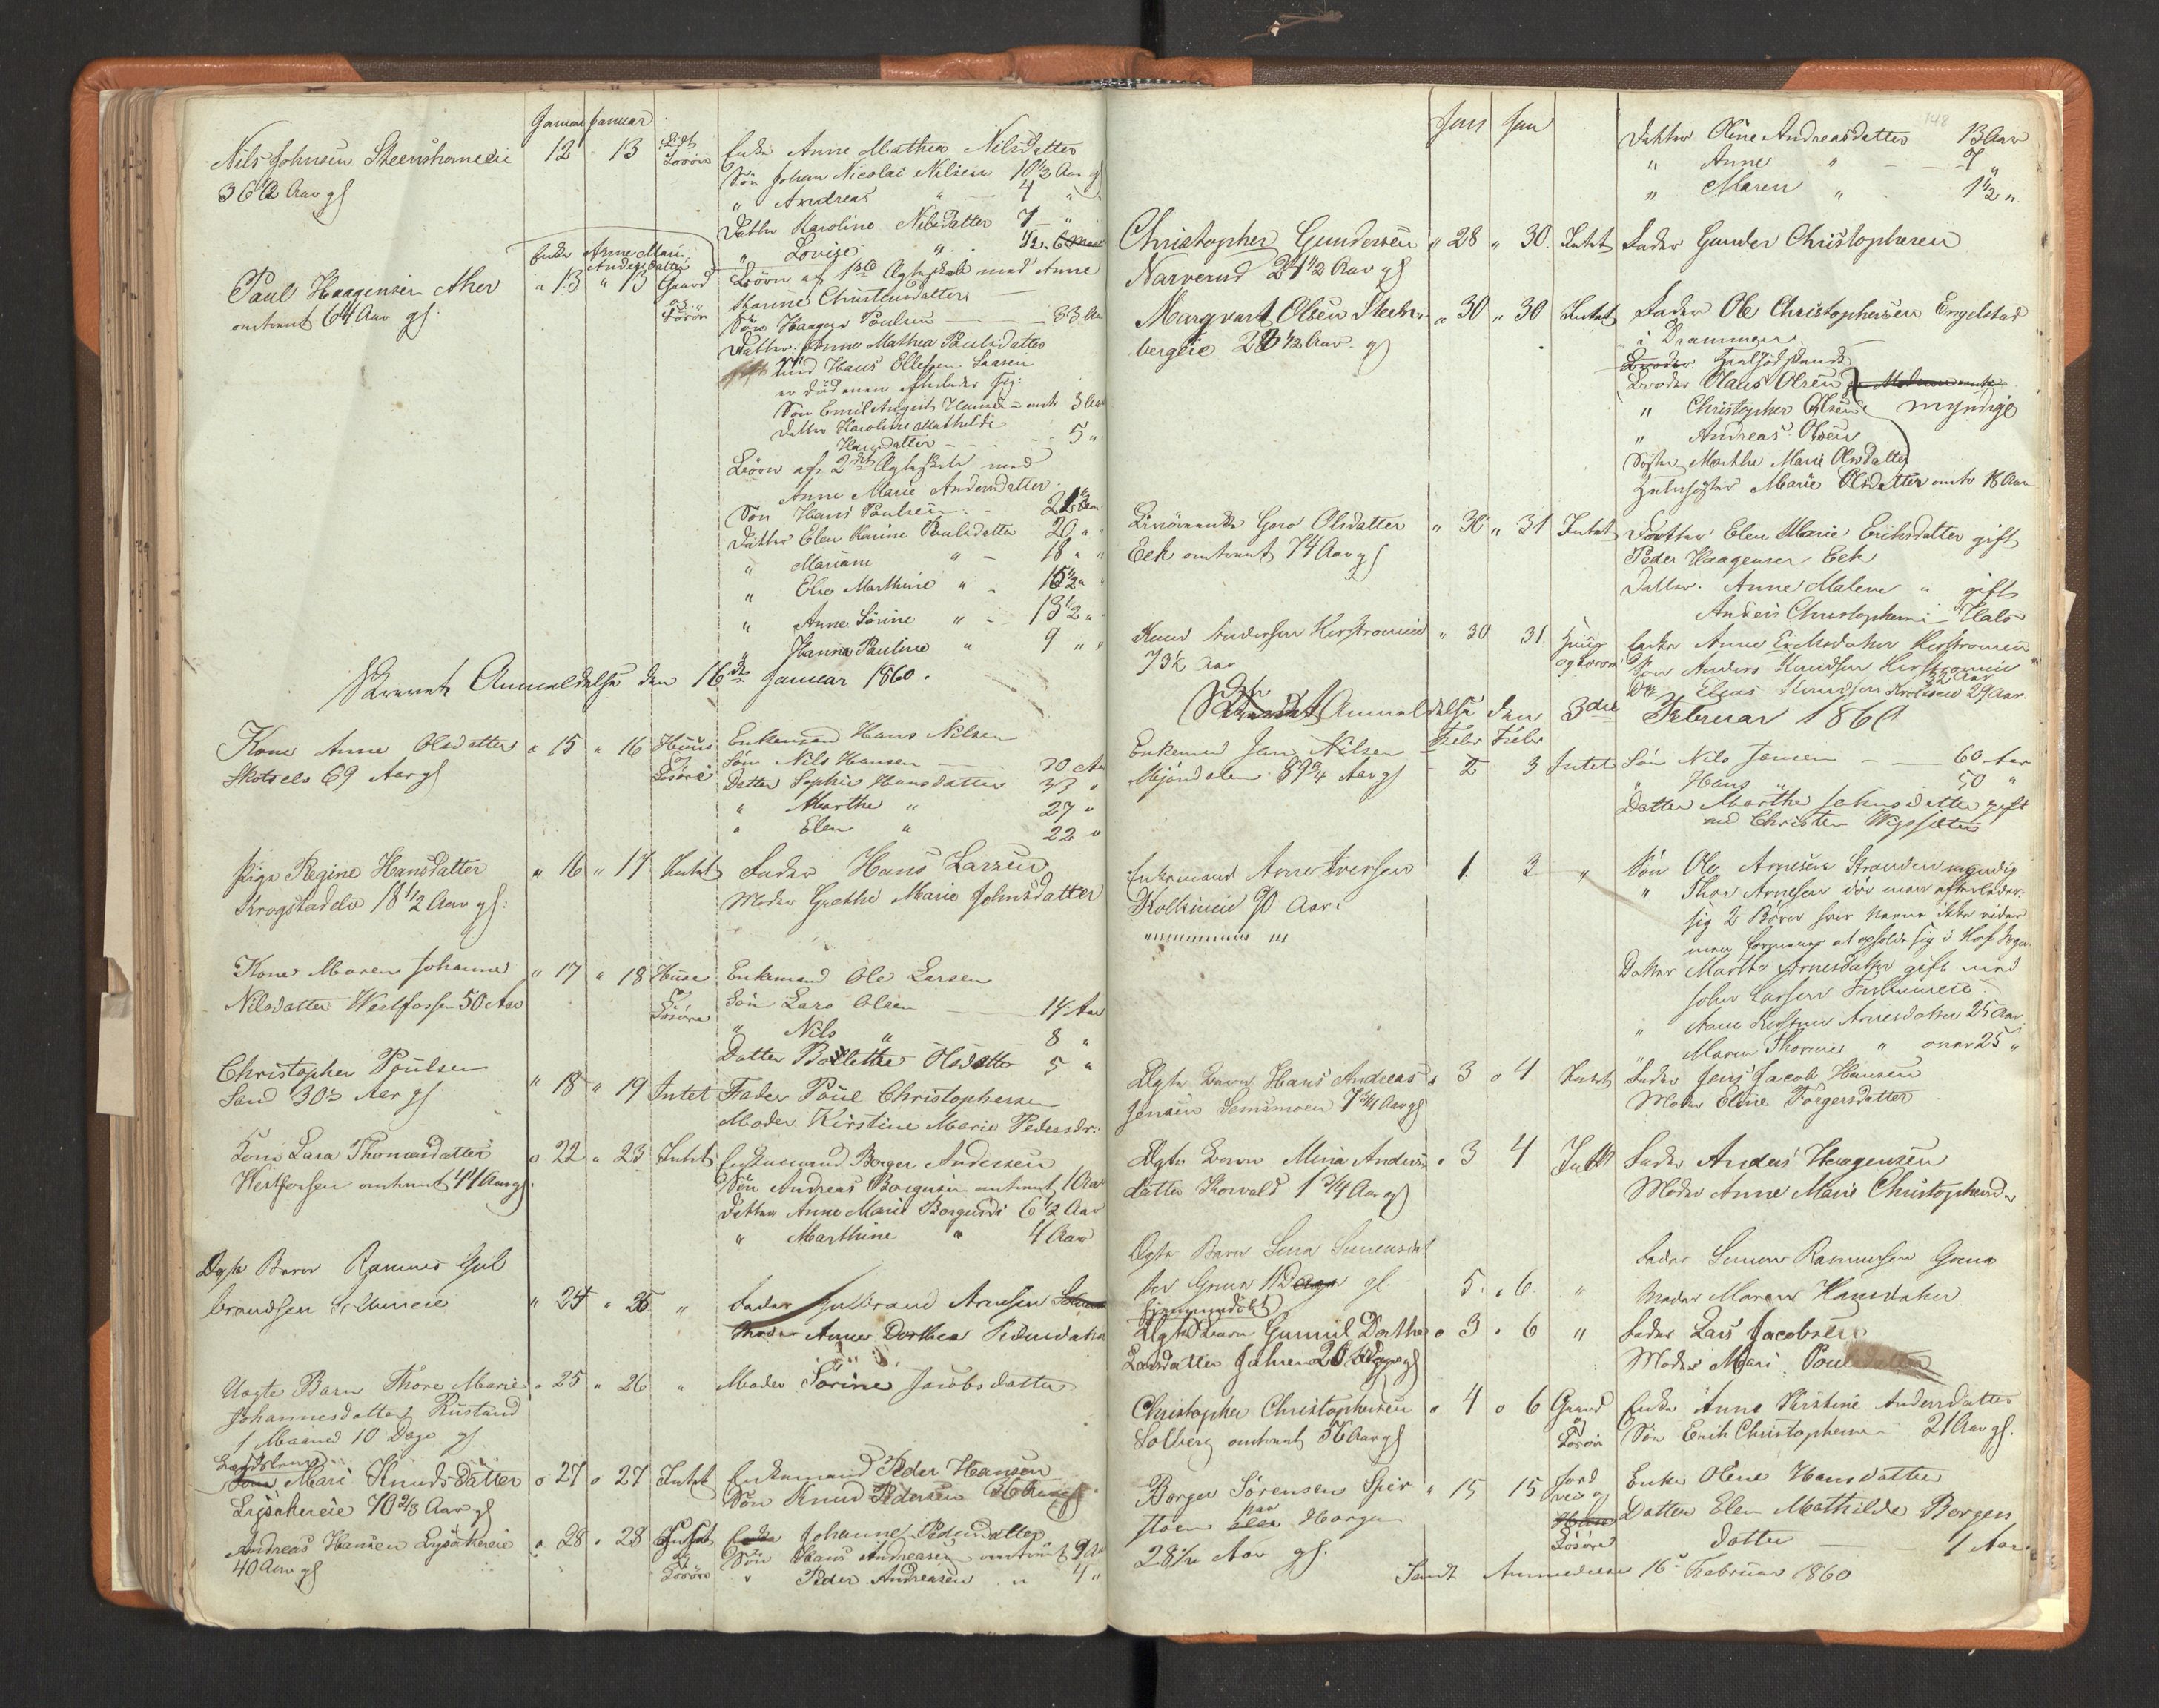 Januar Januar
Nils Johnsen Steenshorneeie 12 13 Lidt Løsøre Enke Anne Mathea Nilsdatter
36½ Aar gl Søn Johan Nicolai Nilsen 10½ Aar gl
" Andreas " 4 "
Datter Karoline Nilsdatter 7 "
" Lovise " ½
Enke Anne Mari Andersdatter
Paul Haagensen Aker " 13 " 13 Gaard og Løsøre Børn af 1ste Ægteskab med Anne
omtrent 64 Aar gl. Karine Christensdatter
Søn Haagen Poulsen 33 Aar
Datter Anne Mathea Poulsdatter
gift med Hans Ellefsen Saasen
er død men efterlader sig:
Søn Emil August Hansen omtr 3 Aar
Datter Karoline Mathilde
Hansdatter 5 "
Børn af 2det Ægteskab med
Anne Marie Andersdatter
Søn Hans Poulsen 22½ Aar
Datter Elen Karine Poulsdatter 20 "
" Mariane " 18 "
" Else Marthine " 16½ "
" Anne Sørine " 13½ "
" Hanna Pauline " 9 "
Skrevet Anmeldelse den 16de Januar 1860.
Kone Anne Olsdatter " 15 " 16 Huus og Løsøre Enkemand Hans Nilsen
Skotselv 69 Aar gl Søn Nils Hansen 30 Aar
Datter Sophie Hansdatter 33 "
" Marthe " 27 "
" Elen " 22 "
Pige Regine Hansdatter " 16 " 17 Intet Fader Hans Larsen
Krogstadelv 18½ Aar gl: Moder Grethe Marie Johnsdatter
Kone Maren Johanne " 17 " 18 Huse og Løsøre Enkemand Ole Larsen
Nilsdatter Westfossen 50 Aar Søn Lars Olsen 14 Aar
" Nils " 8 "
Datter Bollette Olsdatter 5 "
Christopher Poulsen " 18 " 19 Intet Fader Poul Christophersen
Sand 30½ Aar gl Moder Kirstine Marie Pedersdr:
Kone Lara Thomasdatter " 22 " 23 Intet Enkemand Borger Andersen
Westfossen omtrent 44 Aar gl. Søn Andreas Borgersen omtrent 10 Aar
Datter Anne Marie Borgersd: 6½ Aar
" Marthine " 4 Aar
Ægte Barn Rasmus Gul
brandsen " 24 " 25 " Fader Gulbrand Arnesen
Moder Anne Dorthea Pedersdatter
Uægte Barn Thore Marie " 25 " 26 " Moder Sørine Jacobsdatter
Johannesdatter Rustand
1 Maaned 10 Dage gl
Mari Knudsdatter " 27 " 27 Intet Enkemand Peder Hansen
Lysakereie 70⅔ Aar gl Søn Knud Pedersen
Andreas Hansen Lysakereie " 28 " 28 Løsøre Enke Johanne Pedersdatter
40 Aar gl Søn Hans Andreasen omtrent 9 Aar
" Peder Andreasen " 4 "
148
Jan Jan Datter Oline Andreasdatter 13 Aar
" Anne " 7 "
" Maren " 1½ "
Christopher Gundersen " 28 " 30 Intet Fader Gunder Christophersen
Narverud 24½ Aar gl
Margvart Olsen Steens " 30 " 30 Intet Fader Ole Christophersen Engelstad
bergeie 28½ Aar gl i Drammen.
Halvsødskende
Broder Olaus Olsen
" Christopher Olsen myndige
" Andreas Olsen
Søster Marthe Marie Olsdatter
Halvsøster Marie Olsdatter omtr 18 Aar
Goro Olsdatter " 30 " 31 Intet Datter Elen Marie Eriksdatter gift
Eek omtrent 74 Aar gl Peder Haagensen Eek
Datter Anne Malene " gift
Anders Christophersen Hals
Knud Andersen " 30 31 Huus og Løsøre Enke Anne Eriksdatter
73½ Aar Søn Anders Knudsen 32 Aar
Do Elias Knudsen 29 Aar
Anmeldelse den 3die Februar 1860
Febr Febr
Enkemand Jan Nilsen 2 3 Intet Søn Nils Jansen 60 Aar
Mjøndalen 89¾ Aar gl " Hans " 50 "
Datter Marthe Jahnsdatter gift
med Christen
Enkemand Arne Iversen 1 3 " Søn Ole Arnesen Stranden myndig
Kolkineie 90 Aar. " Thor Arnesen død men efterlader
sig 2 Børn hvis Navne ikke vides
men formenes at opholde sig i
Datter Marthe Arnesdatter gift med
John Larsen
" Anne Kirstine Arnesdatter 25 Aar
" Maren Thorine " over 25 "
Ægte Barn Hans Andreas " 3 " 4 Intet Fader Jens Jacob Hansen
Jensen Semsmoen 7¾ Aar gl Moder Eline Torgersdatter
Ægte Barn Mina Anders " 3 4 Intet Fader Anders Haagensen
datter Horvald 1¾ Aar gl Moder Anne Marie Christophersdr
Ægte Barn Lena Simensdat
ter 12 Dage gl 5 " 6 " Fader Simon Rasmussen
hjemmedøbt Moder Maren Hansdatter
Ægte Barn Gunnil Dorthe " 3 " 6 " Fader Lars Jacobsen
Larsdatter Moder Mari Poulsdatter
Christopher Christophersen " 4 " 6 Gaard og Løsøre Enke Anne Kirstine Andersdatter
Solberg omtrent 56 Aar gl Søn Erik Christophersen 21 Aar gl.
Borger Sørensen Spir " 15 15 Enke Oline Hansdatter
stoen paa Horgen Løsøre Datter Elen Mathilde Borgers
28½ Aar gl. datter 1 Aar
Sendt Anmeldelse 16de Februar 1860